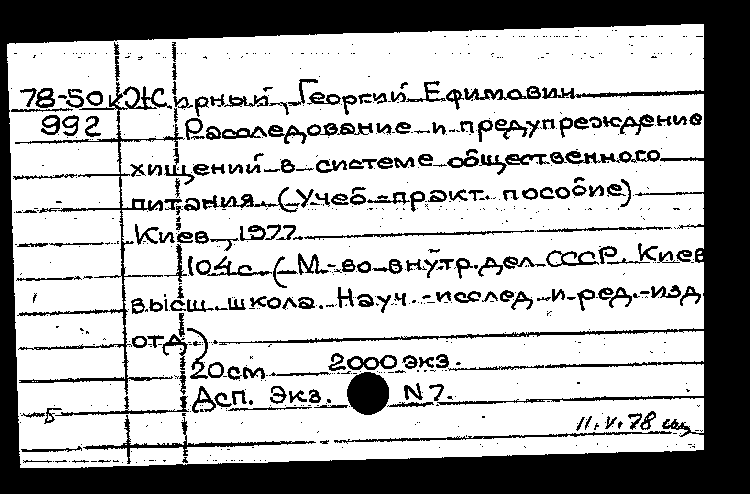 78-50к Жирный, Георгий Ефимович
992 Расследование и предупреждение
хищений в системе общественного
питания. (Учеб.-практ. пособие)
Киев, 1977.
104 с. (М-во внутр. дел СССР. Киев
высш. школа. Науч.-исслед. и ред.-изд.
отд.)
20 см 2000 экз.
Дсп. Экз. N 7.
11.V.78